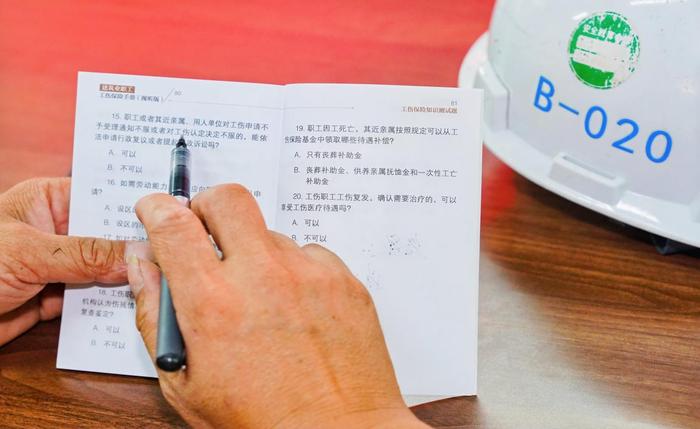 建筑业职工
工伤保险手册(视听版)
80
15. 职工或者其近亲属、用人单位对工伤申请不
予受理通知不服或者对工伤认定决定不服的，能依
法申请行政复议或者提起
政诉讼吗?
A. 可以
B. 不可以
16. 如需劳动能力
应向
申
请?
A. 设区
B. 设区的
17.
18. 工伤职
机构认为伤残情
复查鉴定?
A. 可以
B. 不可以
工伤保险知识测试题
81
19. 职工因工死亡，其近亲属按照规定可以从工
伤保险基金中领取哪些待遇补偿?
A. 只有丧葬补助金
B. 丧葬补助金、供养亲属抚恤金和一次性工亡
补助金
20. 工伤职工工伤复发，确认需要治疗的，可以
享受工伤医疗待遇吗?
A. 可以
B. 不可
B-020